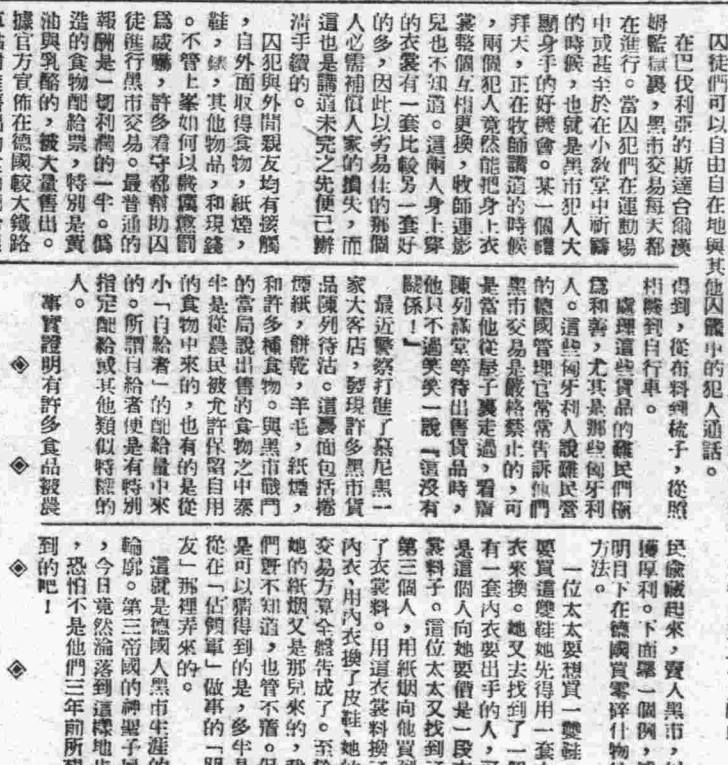 囚徒們可以自由自在地與其他囚籠中的犯人通話。
在巴伐利亞的斯達台爾漢
姆監獄裏,黑市交易每天都
在進行。當囚犯們在運動場
中或甚至於在小教堂中祈禱
的時候,也就是黑市犯人大
顯身手的好機會。某一個禮
拜天,正在牧師講道的時候
,兩個犯人竟然能把身上衣
裳整個互相更換,牧師連影
兒也不知道。這兩人身上穿
的衣裳有一套比較另一套好
的多,因此以劣易佳的那個
人必需補償人家的損失,而
這也是講道未完之先便已辦
清手續的。
囚犯與外間親友均有接觸
,自外面取得食物,紙煙,
鞋,錶,其他物品,和現錢
。不管上峯如何以嚴厲懲罰
爲威嚇,許多看守都幫助囚
徒進行黑市交易。最普通的
報酬是一切利潤的一半。僞
造的食物配給票,特別是黃
油與乳酪的,被大量售出。
據官方宣佈在德國較大鐵路
得到,從布料到梳子,從照
相機到自行車。
處理這些貨品的難民們極
爲和善,尤其是那些匈牙利
人。這些匈牙利人說難民營
的德國管理官常常告訴他們
黑市交易是嚴格禁止的,可
是當他從屋子裏走過,看廣
陳列滿堂等待出售貨品時,
他只不過笑笑一說『這沒有
關係!』
最近警察打進了慕尼黑一
家大客店,發現許多黑市貨
品陳列待沽。這裏面包括捲
煙紙,餅乾,羊毛,紙煙,
和許多種食物。與黑市戰鬥
的當局說出售的食物之中泰
半是從農民被允許保留自用
的食物中來的,也有的是從
小「自給者」的配給量中來
的。所謂自給者便是有特別
指定配給或其他類似特權的
人。
事實證明有許多食品被農
民偷藏起來,賣入黑市,以
獲厚利。下面舉一個例,
明目下在德國買零碎什物的
方法。
一位太太要想買一雙鞋
要買這雙鞋她先得用一套
衣來換。她又去找到了一個
有一套內衣要出手的人,可
是這個人向她要價是一段衣
裳料子。這位太太又找到了
第三個人,用紙烟向他買到
了衣裳料。用這衣裳料換了
內衣,用內衣換了皮鞋,她的
交易方算全盤告成了。至於
她的紙烟又是那兒來的,我
們旣不知道,也管不着。但
是可以猜得到的是,多半是
從在「佔領軍」做事的「朋
友」那裡弄來的。
這就是德國人黑市生涯的
輪廓。第三帝國的神聖子民
,今日竟然淪落到這樣地步
,恐怕不是他們三年前所料
到的吧!